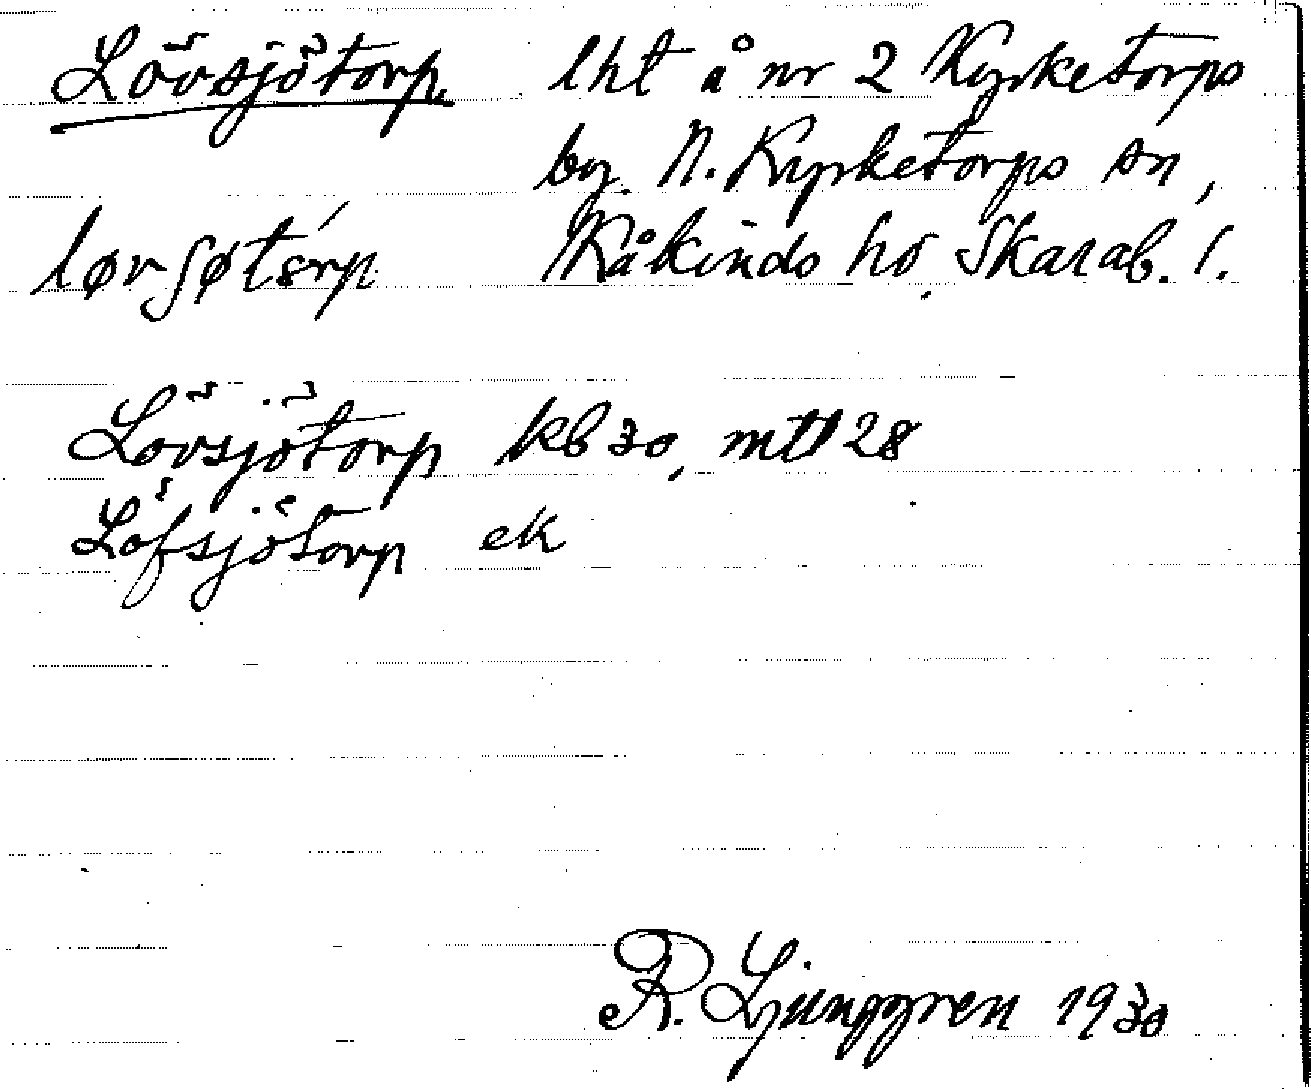 Lövsjötorp lht å nr 2 Kyrketorps
by. N. Kyrketorps sn,
løvʃøtórp Kåkinds hd, Skarab. l.
Lövsjötorp kb 30, mtl 28
Löfsjötorp ek
R. Ljunggren 1930